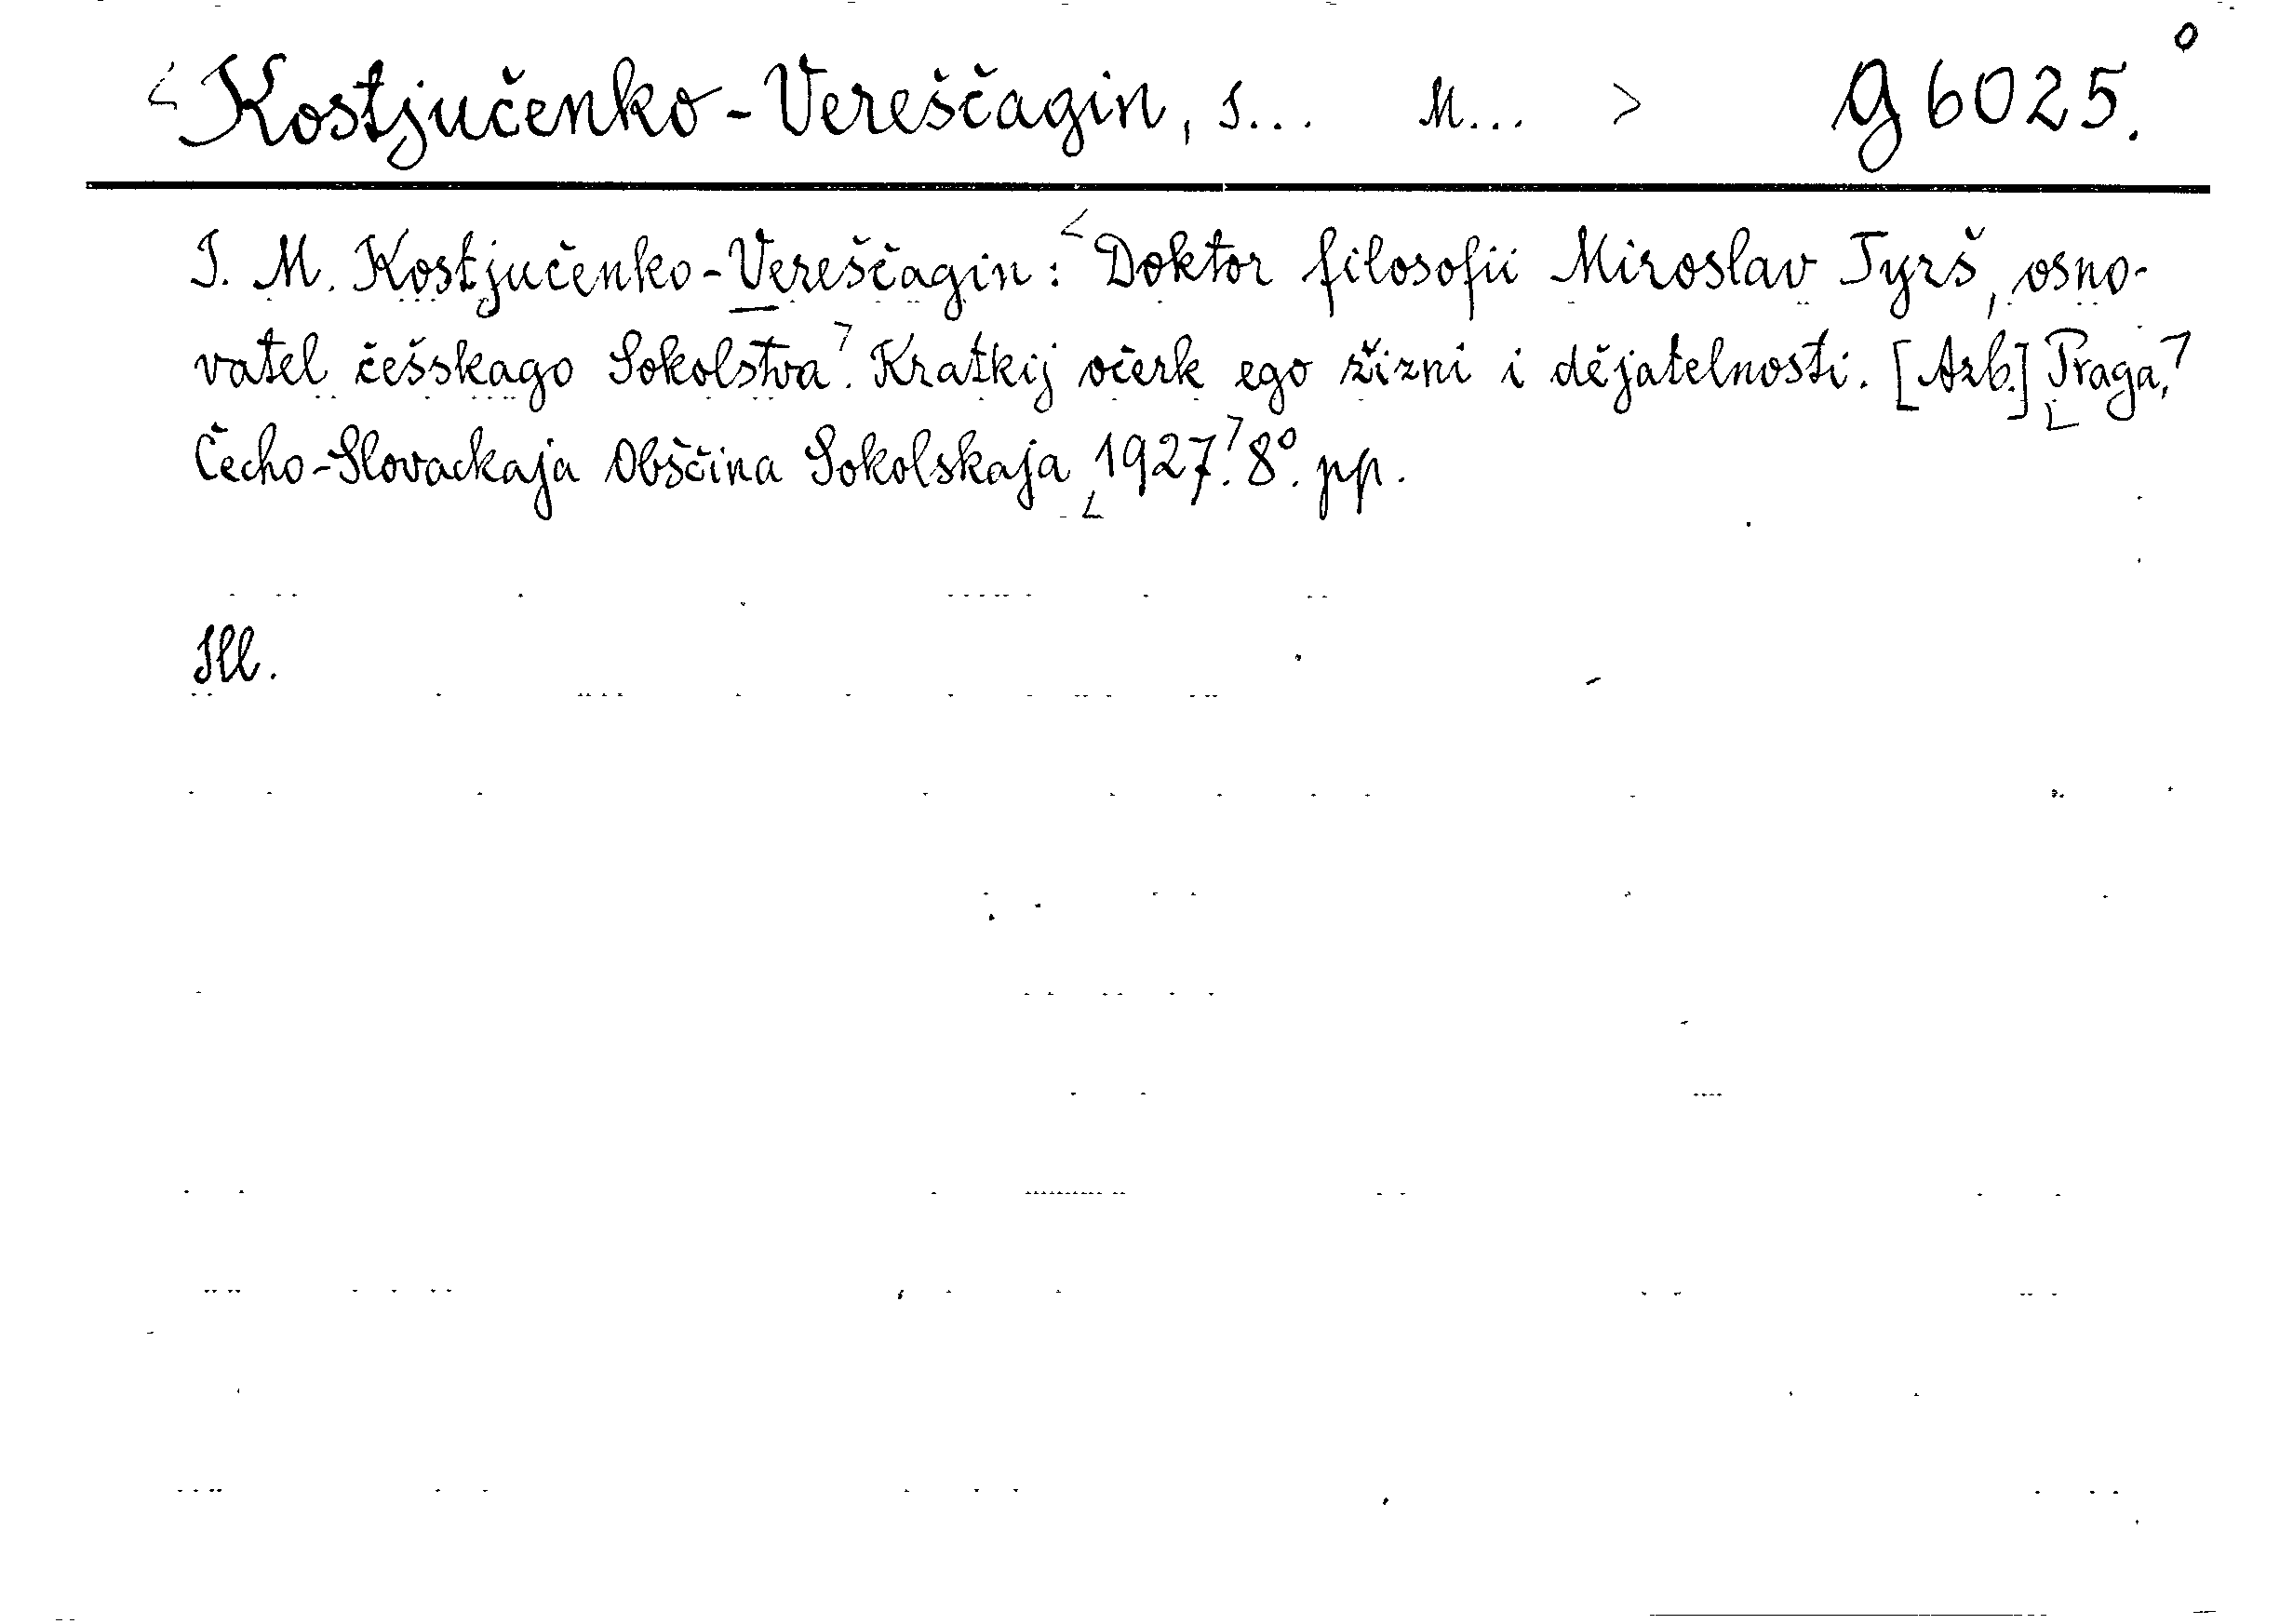 <Kostjučenko-Vereščagin, I... M... > G 6025.
I. M. Kostjučenko-Vereščagin: <Doktor filosofii Miroslav Tyrš, osno-
vatel češskago Sokolstva>. Kratkij očerk ego žizni i dějatelnosti. [Azb.] <Praga,>
Čecho-Slovackaja Obščina Sokolskaja <1927.> 8°. pp.
Ill.